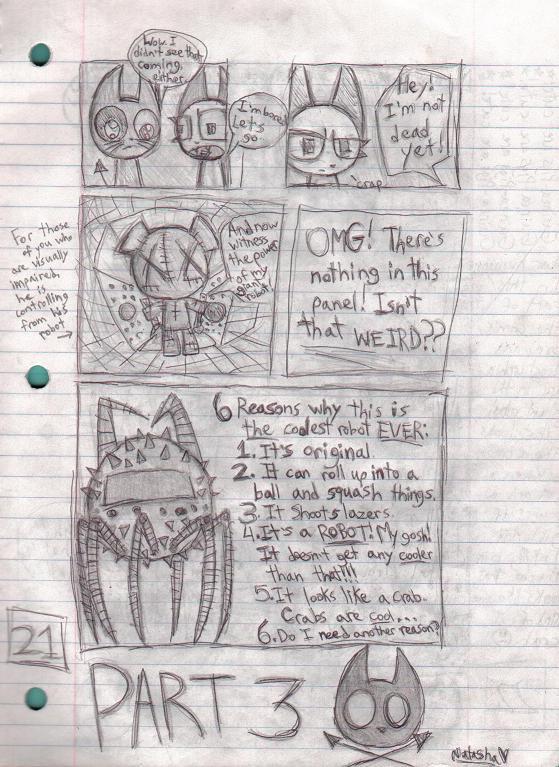 Wow. I
didn't see that
coming
either.
I'm bored
Let's
go.
Hey!
I'm not
dead
yet!
'crap
For those
of you who
are visually
impaired:
he is
controlling
from his
robot
And now
witness
the power
of my
giant
robot!
OMG! There's
nothing in this
panel! Isn't
that WEIRD??
6 Reasons why this is
the coolest robot EVER:
1. It's original
2. It can roll up into a
ball and squash things.
3. It shoots lazers.
4. It's a ROBOT! My gosh!
It doesn't get any cooler
than that!!!
5. It looks like a crab.
Crabs are cool...
6. Do I need another reason?
21
PART 3
Natasha